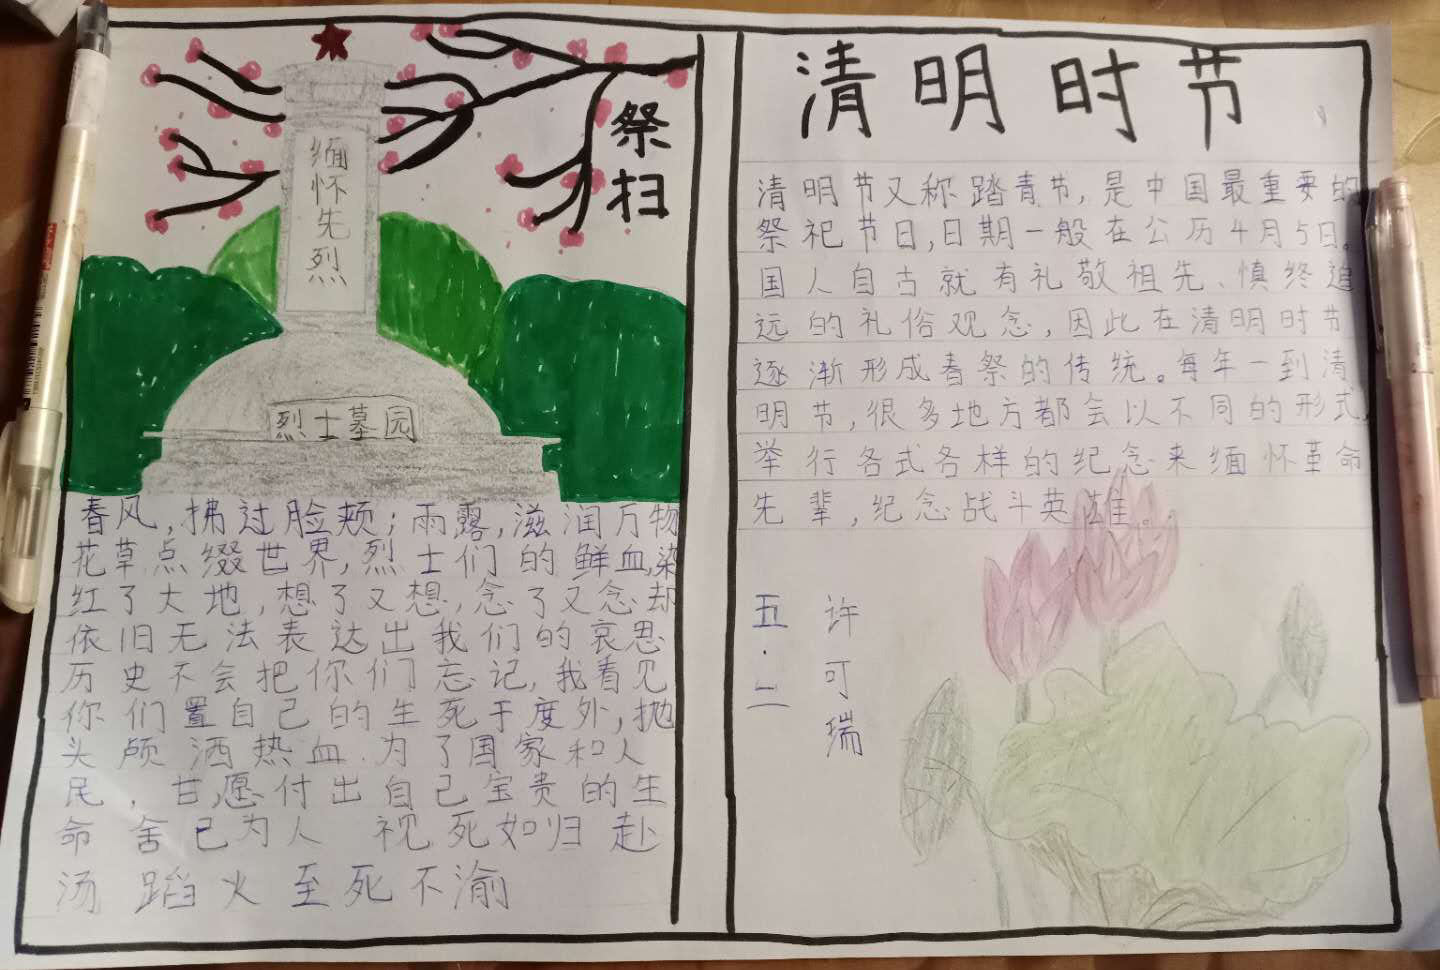 祭扫
缅怀先烈
烈士墓园
春风,拂过脸颊;雨露,滋润万物
花草点缀世界,烈士们的鲜血,染
红了大地,想了又想,念了又念却
依旧无法表达出我们的哀思
历史不会把你们忘记,我看见
你们置自己的生死于度外,抛
头颅洒热血.为了国家和人
民,甘愿付出自己宝贵的生
命舍己为人 视死如归赴
汤蹈火至死不渝
清明时节
清明节又称踏青节,是中国最重要的
祭祀节日,日期一般在公历4月5日。
国人自古就有礼敬祖先、慎终追
远的礼俗观念,因此在清明时节
逐渐形成春祭的传统。每年一到清
明节,很多地方都会以不同的形式,
举行各式各样的纪念来缅怀革命
先辈,纪念战斗英雄。
五.二
许可瑞